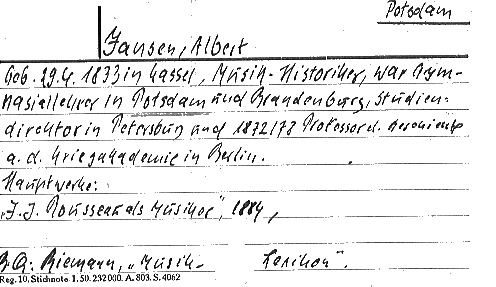 Potsdam
Jansen, Albert
Geb. 29.4. 1833 in Cassel, Musik-Historiker, war Gym-
nasiallehrer in Potsdam und Brandenburg, Studien-
direktor in Petersburg und 1872/78 Professor d. Geschichte
a. d. Kriegsakademie in Berlin.
Hauptwerke:
"J.J. Rousseau als Musiker", 1884,
Riemann, "Musik-Lexikon".
Reg. 10. Stichnote 1. 50. 232000. A. 803. S. 4062